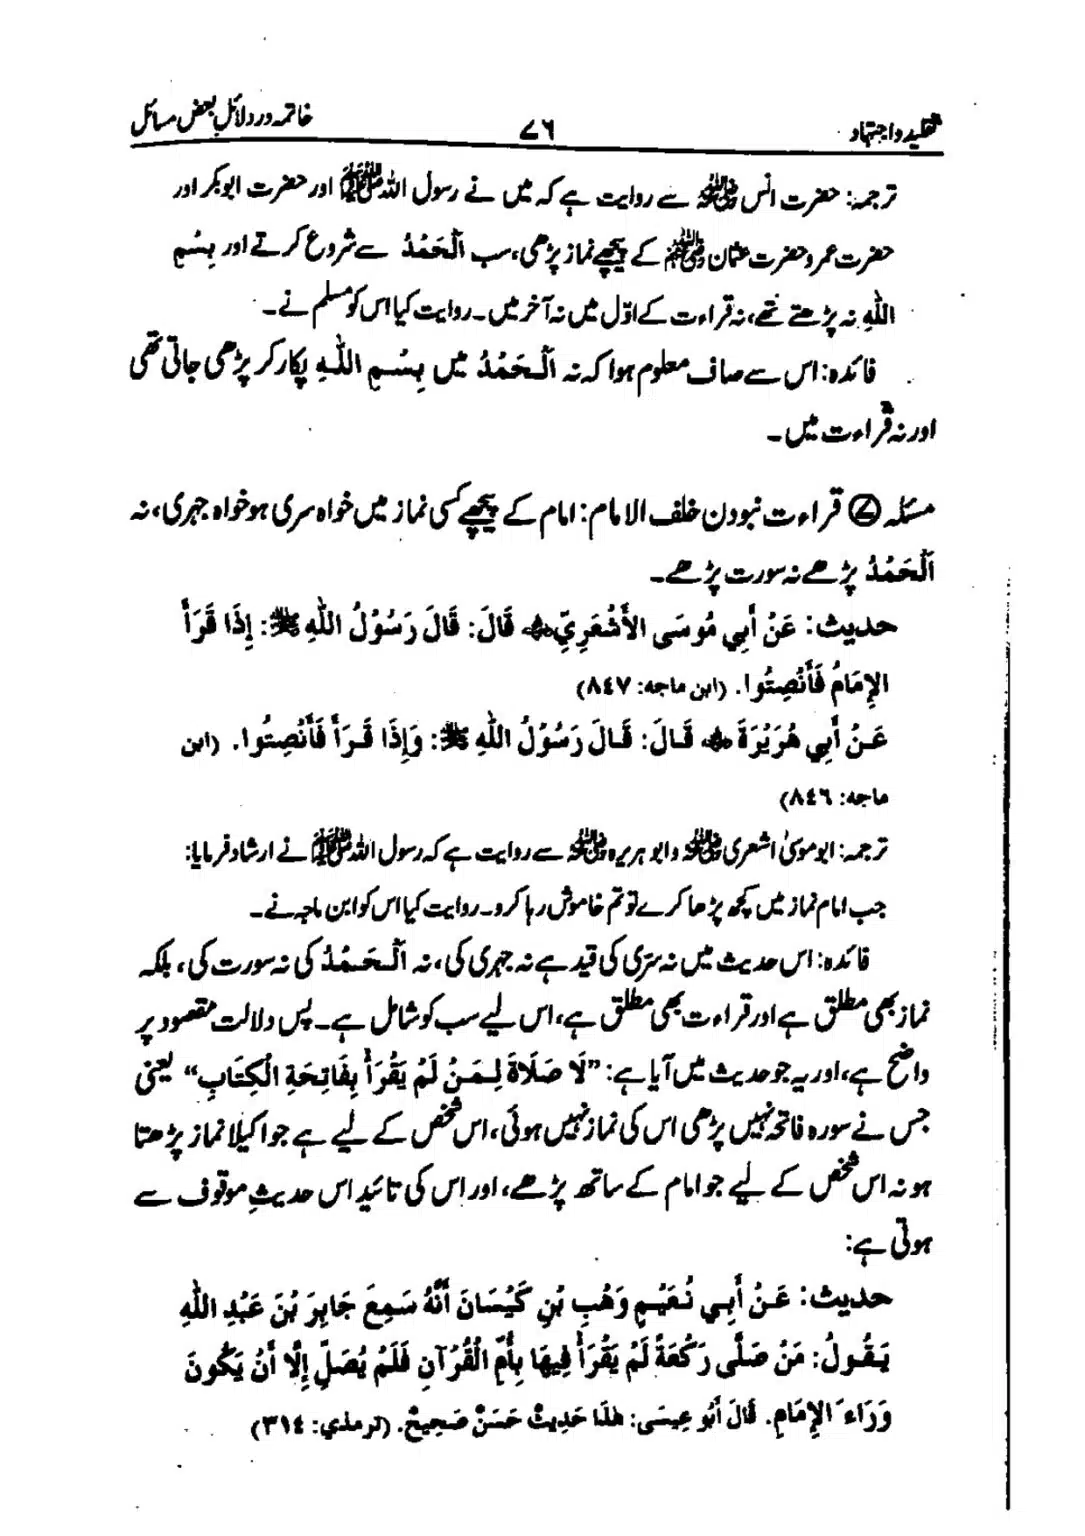 تقلید و اجتہاد ۷۶ خاتمہ در دلائلِ بعض مسائل
ترجمہ: حضرت انس رضی اللہ عنہ سے روایت ہے کہ میں نے رسول اللہ ﷺ اور حضرت ابوبکر اور
حضرت عمر و حضرت عثمان رضی اللہ عنہم کے پیچھے نماز پڑھی، سب اَلْحَمْدُ سے شروع کرتے اور بِسْمِ
اللّٰهِ نہ پڑھتے تھے، نہ قراءت کے اوّل میں نہ آخر میں۔ روایت کیا اس کو مسلم نے۔
فائدہ: اس سے صاف معلوم ہوا کہ نہ اَلْحَمْدُ میں بِسْمِ اللّٰهِ پکار کر پڑھی جاتی تھی
اور نہ قراءت میں۔
مسئلہ ⑦ قراءت نبودن خلف الامام: امام کے پیچھے کسی نماز میں خواہ سری ہو خواہ جہری، نہ
اَلْحَمْدُ پڑھے نہ سورت پڑھے۔
حدیث: عَنْ أَبِي مُوسَى الأَشْعَرِيِّ رضی اللہ عنہ قَالَ: قَالَ رَسُوْلُ اللّٰهِ ﷺ: إِذَا قَرَأَ
الإِمَامُ فَأَنْصِتُوا. (ابن ماجه: ٨٤٧)
عَنْ أَبِي هُرَيْرَةَ رضی اللہ عنہ قَالَ: قَالَ رَسُوْلُ اللّٰهِ ﷺ: وَإِذَا قَرَأَ فَأَنْصِتُوا. (ابن
ماجه: ٨٤٦)
ترجمہ: ابو موسیٰ اشعری رضی اللہ عنہ و ابو ہریرہ رضی اللہ عنہ سے روایت ہے کہ رسول اللہ ﷺ نے ارشاد فرمایا:
جب امام نماز میں کچھ پڑھا کرے تو تم خاموش رہا کرو۔ روایت کیا اس کو ابن ماجہ نے۔
فائدہ: اس حدیث میں نہ سرّی کی قید ہے نہ جہری کی، نہ اَلْحَمْدُ کی نہ سورت کی، بلکہ
نماز بھی مطلق ہے اور قراءت بھی مطلق ہے، اس لیے سب کو شامل ہے۔ پس دلالت مقصود پر
واضح ہے، اور یہ جو حدیث میں آیا ہے: ”لَا صَلَاةَ لِمَنْ لَمْ يَقْرَأْ بِفَاتِحَةِ الْكِتَابِ“ یعنی
جس نے سورہ فاتحہ نہیں پڑھی اس کی نماز نہیں ہوئی، اس شخص کے لیے ہے جو اکیلا نماز پڑھتا
ہو نہ اس شخص کے لیے جو امام کے ساتھ پڑھے، اور اس کی تائید اس حدیثِ موقوف سے
ہوتی ہے:
حدیث: عَنْ أَبِي نُعَيْمٍ وَهْبِ بْنِ كَيْسَانَ أَنَّهُ سَمِعَ جَابِرَ بْنَ عَبْدِ اللّٰهِ
يَقُولُ: مَنْ صَلَّى رَكْعَةً لَمْ يَقْرَأْ فِيْهَا بِأُمِّ الْقُرْآنِ فَلَمْ يُصَلِّ إِلَّا أَنْ يَكُونَ
وَرَاءَ الإِمَامِ. قَالَ أَبُو عِيسَى: هٰذَا حَدِيثٌ حَسَنٌ صَحِيحٌ. (ترمذي: ٣١٤)